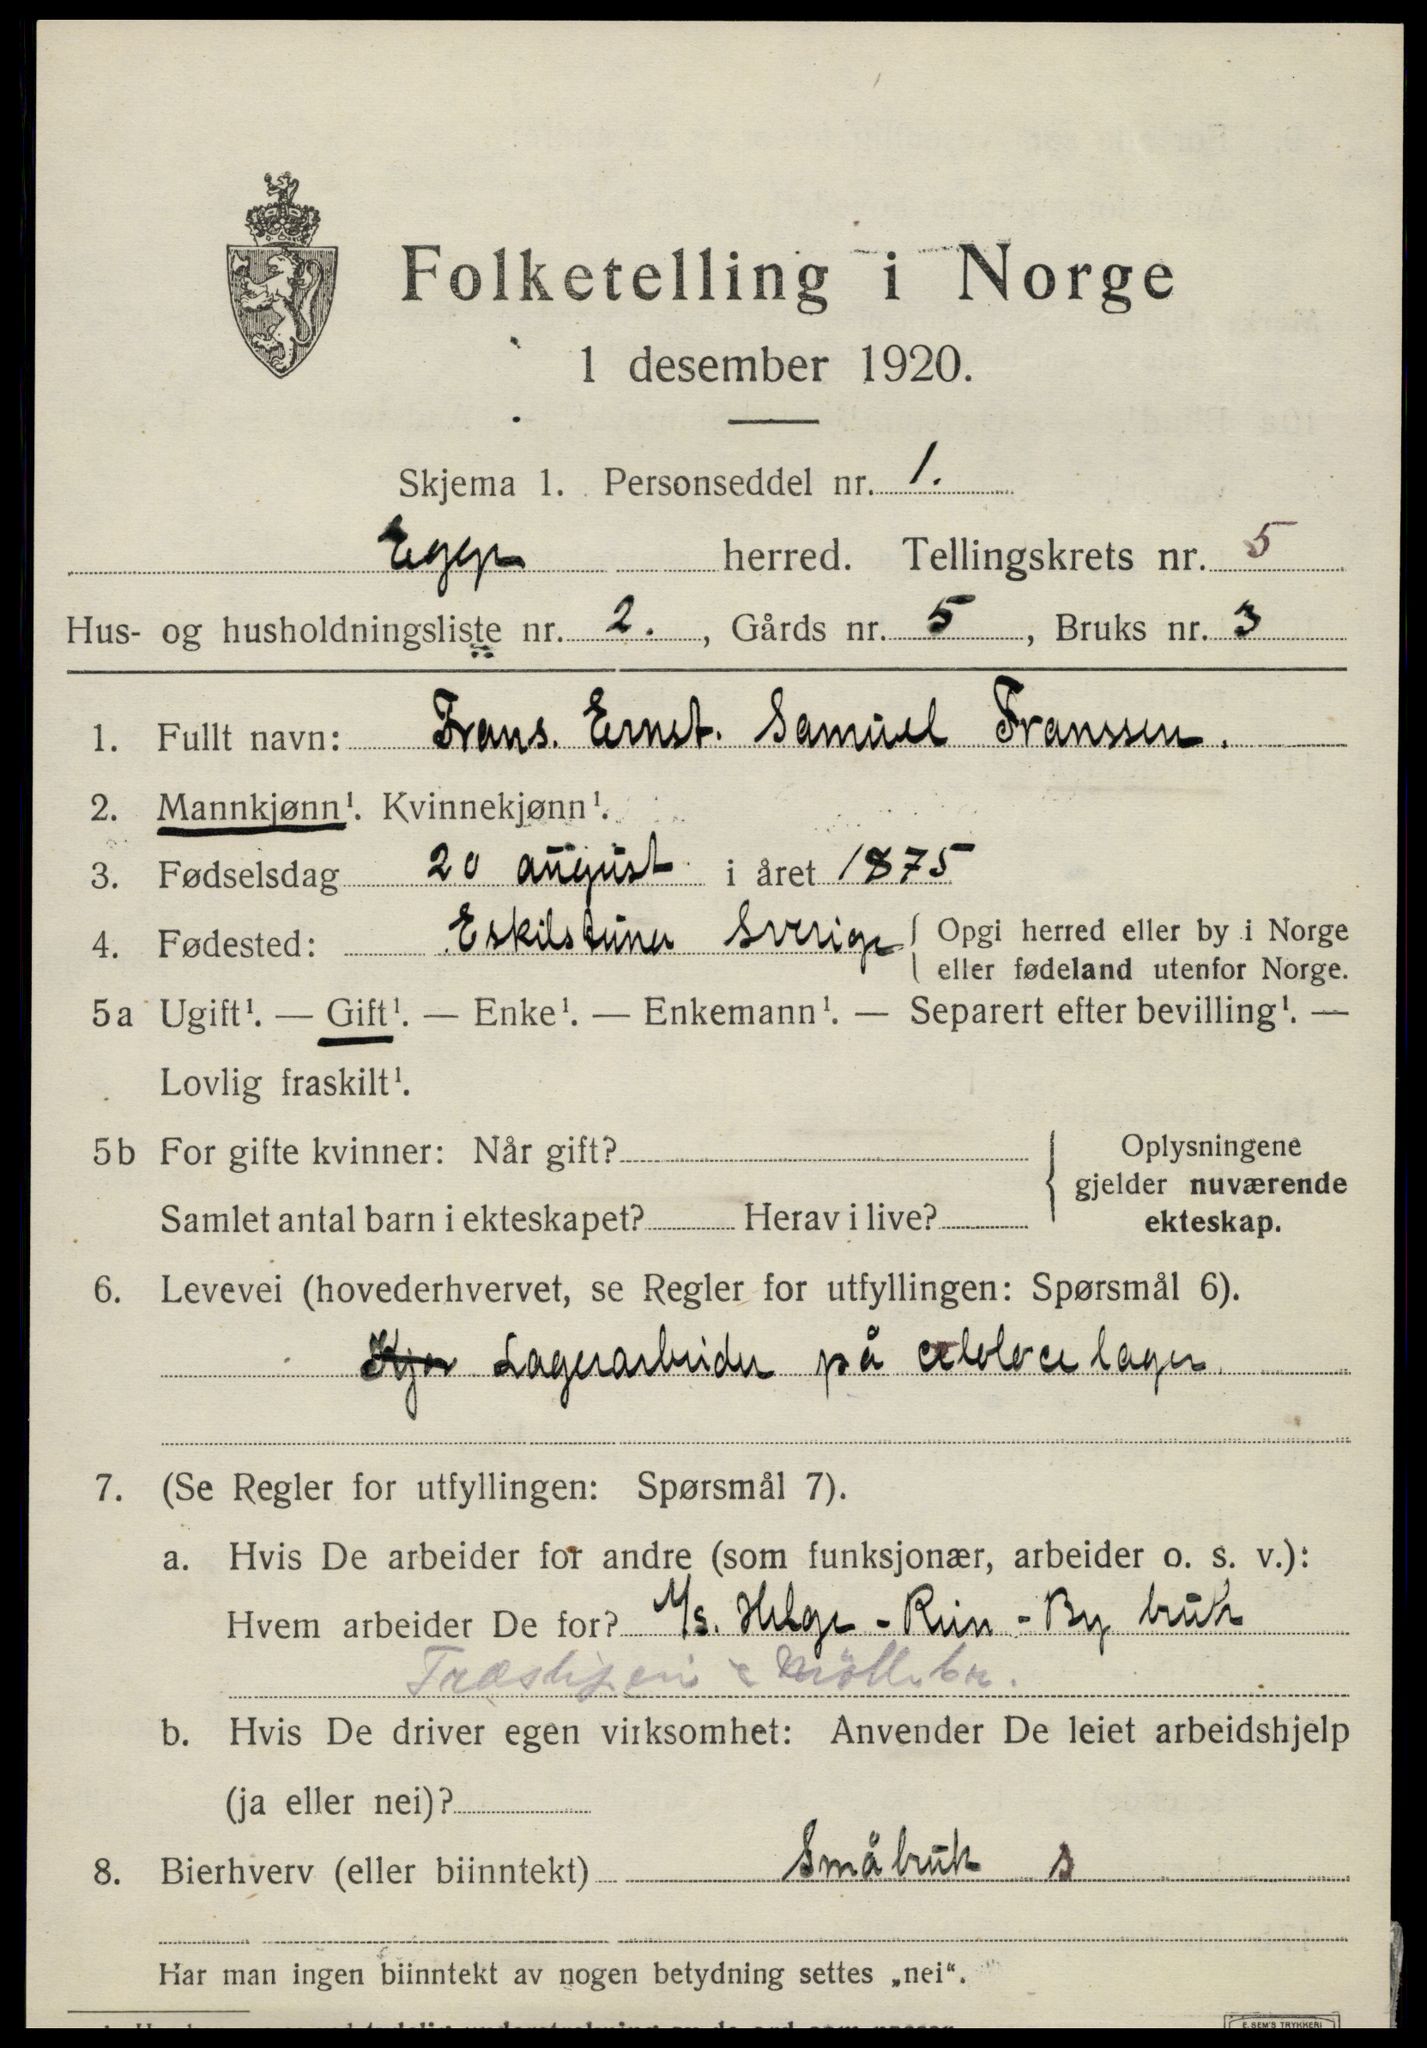 Folketelling i Norge
1 desember 1920.
Skjema 1. Personseddel nr. 1.
Egge herred. Tellingskrets nr. 5
Hus- og husholdningsliste nr. 2., Gårds nr. 5, Bruks nr. 3
1. Fullt navn: Frans. Ernst. Samuel Franssen.
2. Mannkjønn¹. Kvinnekjønn¹.
3. Fødselsdag 20 august i året 1875
4. Fødested: Eskilstuna Sverige { Opgi herred eller by i Norge
eller fødeland utenfor Norge.
5a Ugift¹. — Gift¹. — Enke¹. — Enkemann¹. — Separert efter bevilling¹. —
Lovlig fraskilt¹.
5b For gifte kvinner: Når gift? { Oplysningene
gjelder nuværende
Samlet antal barn i ekteskapet? Herav i live? ekteskap.
6. Levevei (hovederhvervet, se Regler for utfyllingen: Spørsmål 6).
Lagerarbeider på celoloce lager
7. (Se Regler for utfyllingen: Spørsmål 7).
a. Hvis De arbeider for andre (som funksjonær, arbeider o. s. v.):
Hvem arbeider De for? A/s. Helge-Rein-By bruk
Træsliperi & Möllebr.
b. Hvis De driver egen virksomhet: Anvender De leiet arbeidshjelp
(ja eller nei)?
8. Bierhverv (eller biinntekt) Småbruk s
Har man ingen biinntekt av nogen betydning settes „nei“.
E. SEM'S TRYKKERI